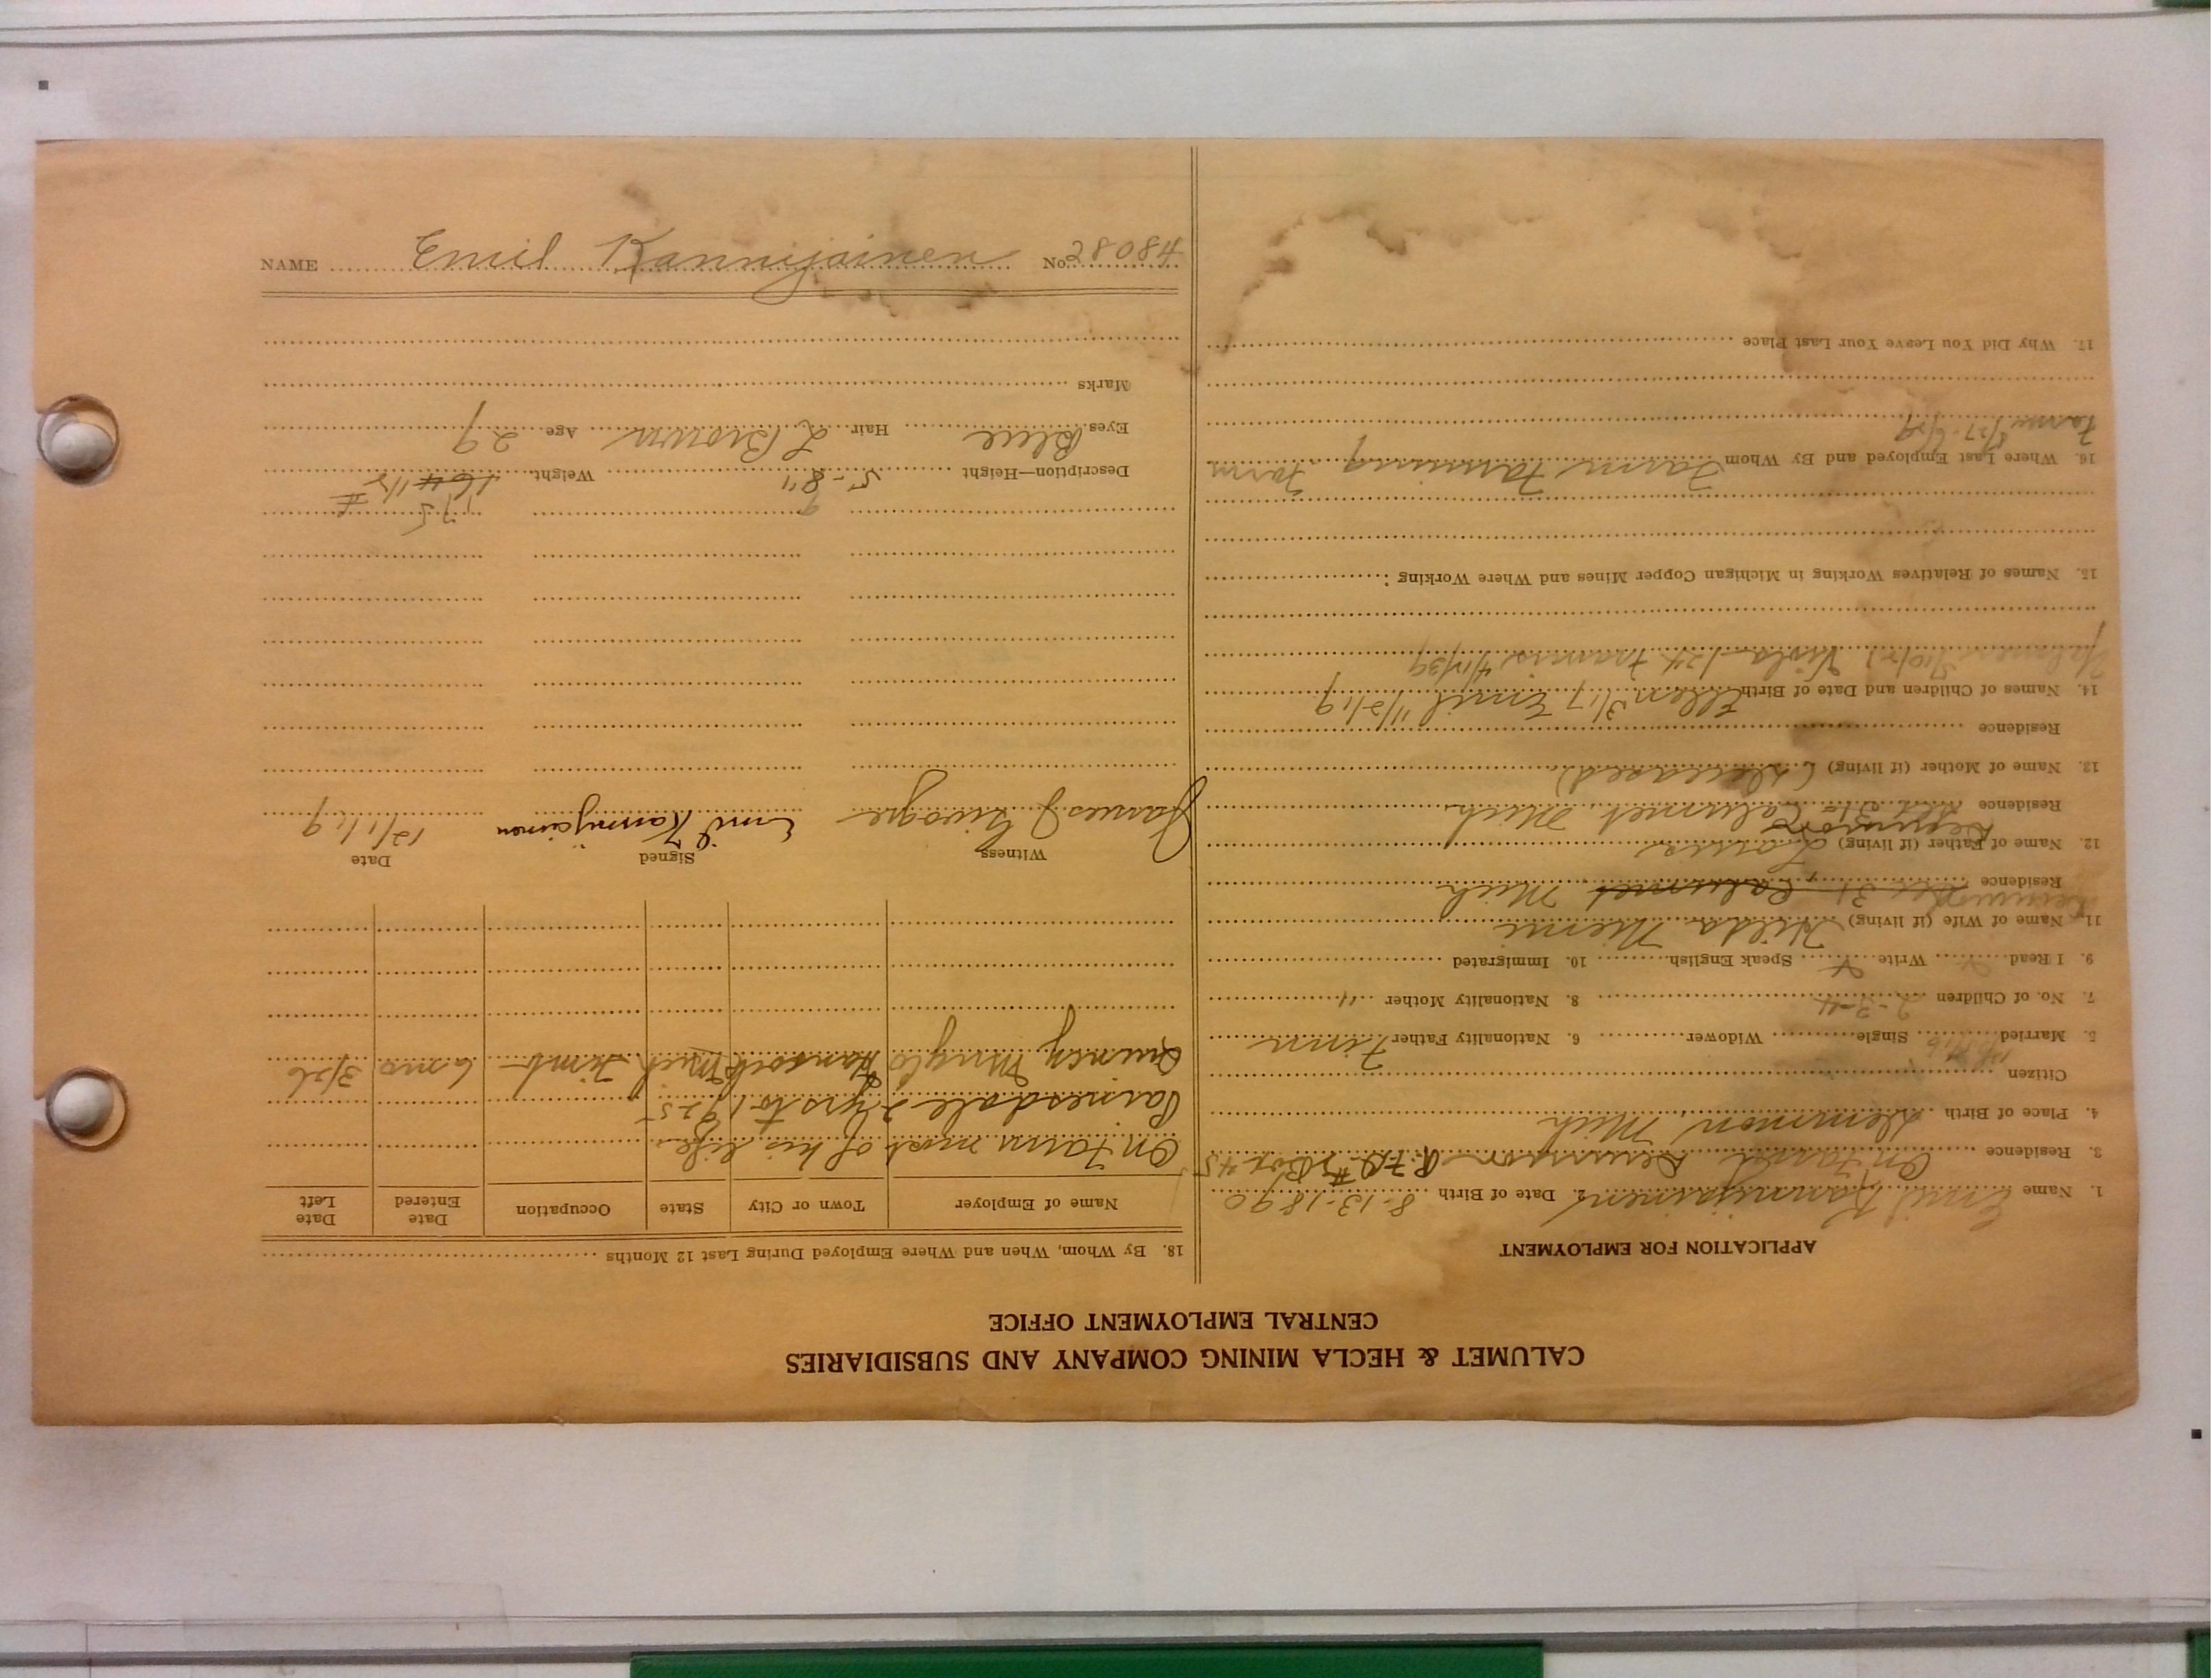 CALUMET & HECLA MINING COMPANY AND SUBSIDIARIES
CENTRAL EMPLOYMENT OFFICE
APPLICATION FOR EMPLOYMENT
1. Name Emil Kannijainen 2. Date of Birth 8-13-1890
3. Residence On Farm Demmon R.F.D. #1 Box 45
4. Place of Birth Demmon Mich
Citizen
5. Married Single Widower 6. Nationality Father Finn
7. No. of Children 2-3-4 8. Nationality Mother "
9. I Read Write Speak English 10. Immigrated
11. Name of Wife (if living) Hilda Niemi
Residence Box 31, Calumet Mich
12. Name of Father (if living) Louis
Residence Box 31 Calumet Mich
13. Name of Mother (if living) (deceased)
Residence
14. Names of Children and Date of Birth Ellen 3/17 Emil 11/2/19
Viola 1/24 Francis 4/11/39
15. Names of Relatives Working in Michigan Copper Mines and Where Working:
16. Where Last Employed and By Whom Farm Farming Farm
Farm
17. Why Did You Leave Your Last Place
18. By Whom, When and Where Employed During Last 12 Months
Name of Employer Town or City State Occupation Date Entered Date Left
On farm most of his life
Painesdale 2 yrs to 1925
Quincy Mng Co Hancock Mich Timb 6 mo 3/26
Witness Signed Date
James J. Emil Kannijainen 12/1/19
175 #
Description—Height 5-8" Weight 164 1/2
Eyes Blue Hair L Brown Age 29
Marks
NAME Emil Kannijainen No. 28084